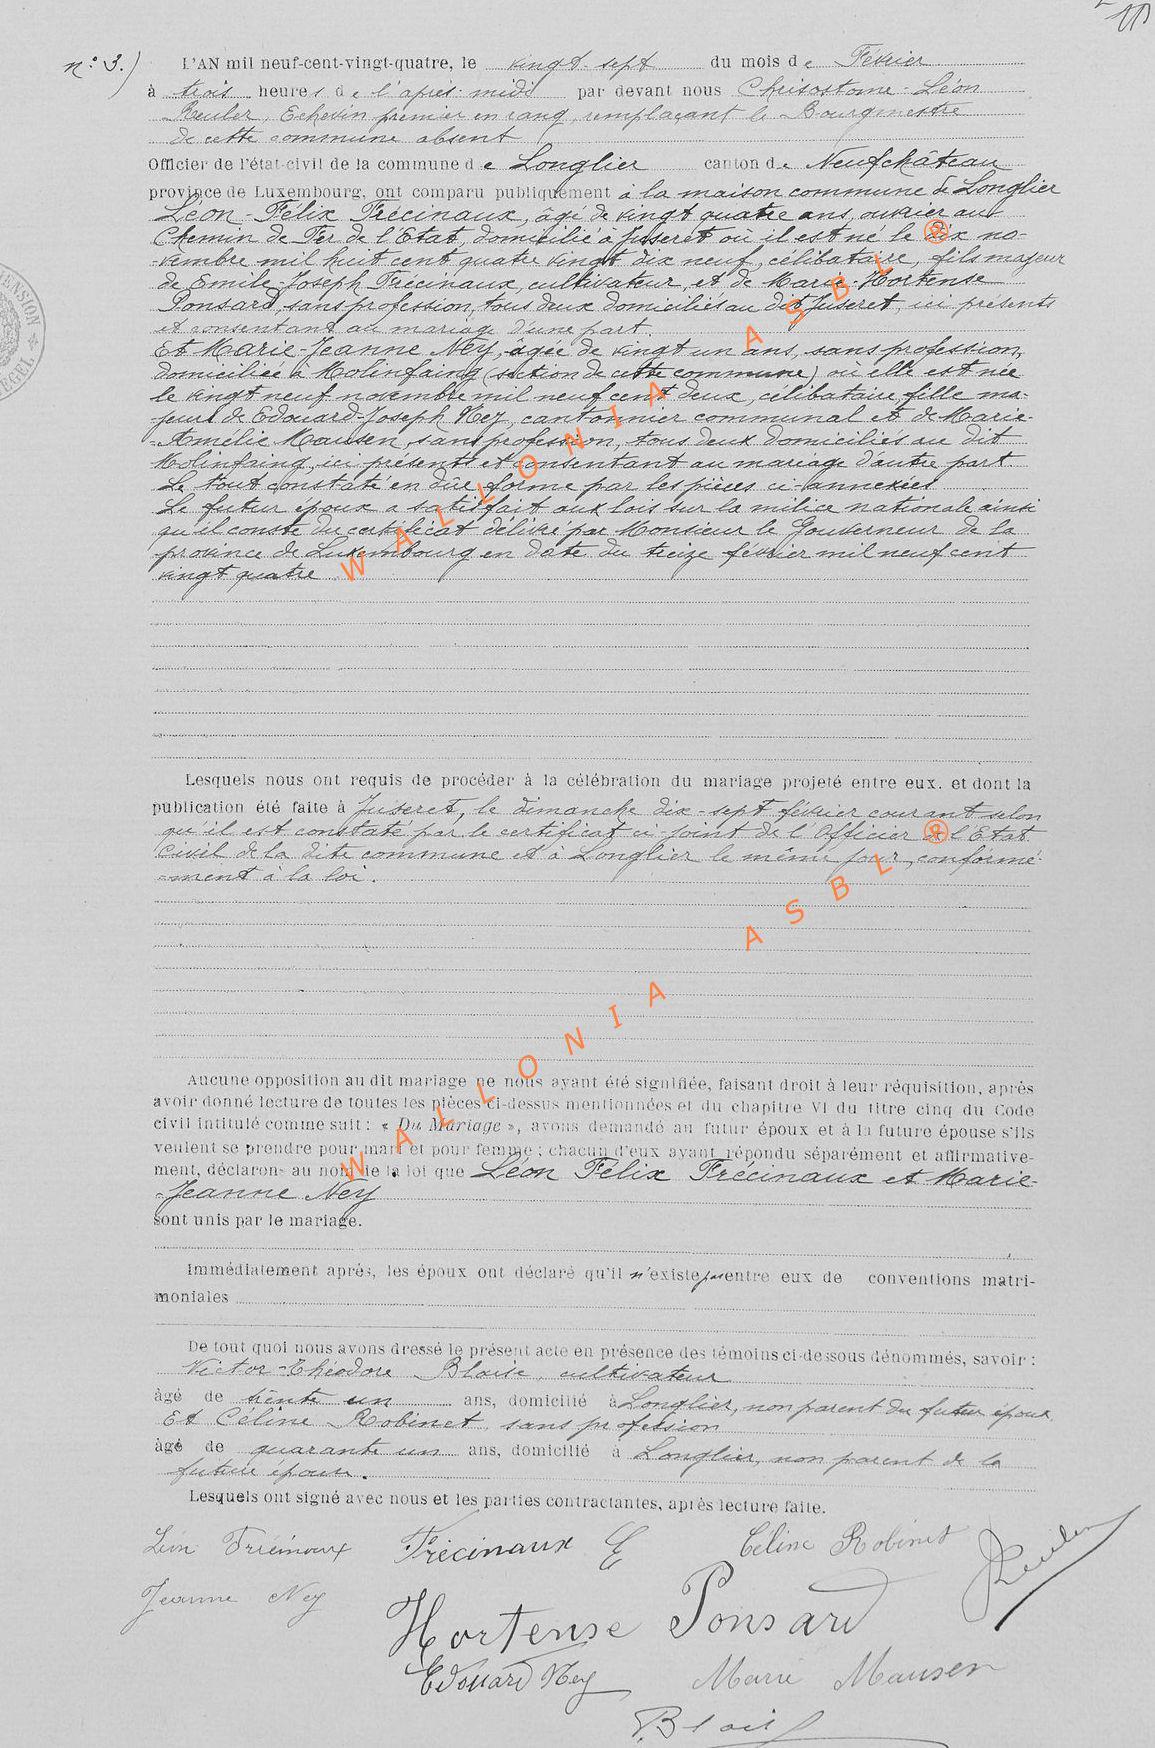 n° 3.)
L'AN mil neuf-cent-vingt-quatre, le vingt-sept du mois de Février
à trois heures de l'après-midi par devant nous Chrisostome-Léon
Reuler, Echevin premier en rang, remplaçant le Bourgmestre
de cette commune absent
Officier de l'état-civil de la commune de Longlier canton de Neufchâteau
province de Luxembourg, ont comparu publiquement à la maison commune de Longlier
Léon-Félix Frécinaux, âgé de vingt quatre ans, ouvrier au
Chemin de Fer de l'Etat, domicilié à Juseret où il est né le dix no-
-vembre mil huit cent quatre vingt dix neuf, célibataire, fils majeur
de Emile-Joseph Frécinaux, cultivateur, et de Marie-Hortense
Ponsard, sans profession, tous deux domiciliés au dit Juseret, ici présents
et consentant au mariage d'une part.
Et Marie-Jeanne Ney, âgée de vingt un ans, sans profession,
domiciliée à Molinfaing (section de cette commune) où elle est née
le vingt neuf novembre mil neuf cent deux, célibataire, fille ma-
jeure de Edouard-Joseph Ney, cantonnier communal et de Marie-
-Amélie Mausen, sans profession, tous deux domiciliés au dit
Molinfaing, ici présents et consentant au mariage d'autre part.
Le tout constaté en due forme par les pièces ci-annexées
Le futur époux a satisfait aux lois sur la milice nationale ainsi
qu'il conste du certificat délivré par Monsieur le Gouverneur de la
province de Luxembourg en date du treize février mil neuf cent
vingt quatre
Lesquels nous ont requis de procéder à la célébration du mariage projeté entre eux. et dont la
publication été faite à Juseret, le dimanche dix-sept février courant selon
qu'il est constaté par le certificat ci-joint de l'Officier de l'Etat
Civil de la dite commune et à Longlier le même jour, conformé-
-ment à la loi.
Aucune opposition au dit mariage ne nous ayant été signifiée, faisant droit à leur réquisition, après
avoir donné lecture de toutes les pièces ci-dessus mentionnées et du chapitre VI du titre cinq du Code
civil intitulé comme suit : « Du Mariage », avons demandé au futur époux et à la future épouse s'ils
veulent se prendre pour mari et pour femme ; chacun d'eux ayant répondu séparément et affirmative-
ment, déclarons au nom de la loi que Léon Félix Frécinaux et Marie-
-Jeanne Ney
sont unis par le mariage.
Immédiatement après, les époux ont déclaré qu'il n'existe pas entre eux de conventions matri-
moniales
De tout quoi nous avons dressé le présent acte en présence des témoins ci-dessous dénommés, savoir :
Victor-Théodore Blaise, cultivateur
âgé de trente un ans, domicilié à Longlier, non parent du futur époux
Et Céline Robinet, sans profession
âgé de quarante un ans, domicilié à Longlier, non parent de la
future épouse.
Lesquels ont signé avec nous et les parties contractantes, après lecture faite.
Léon Frécinaux Frécinaux E Céline Robinet Reuler
Jeanne Ney Hortense Ponsard
Edouard Ney Marie Mausen
V. Blaise
WALLONIA ASBL ®
WALLONIA ASBL ®